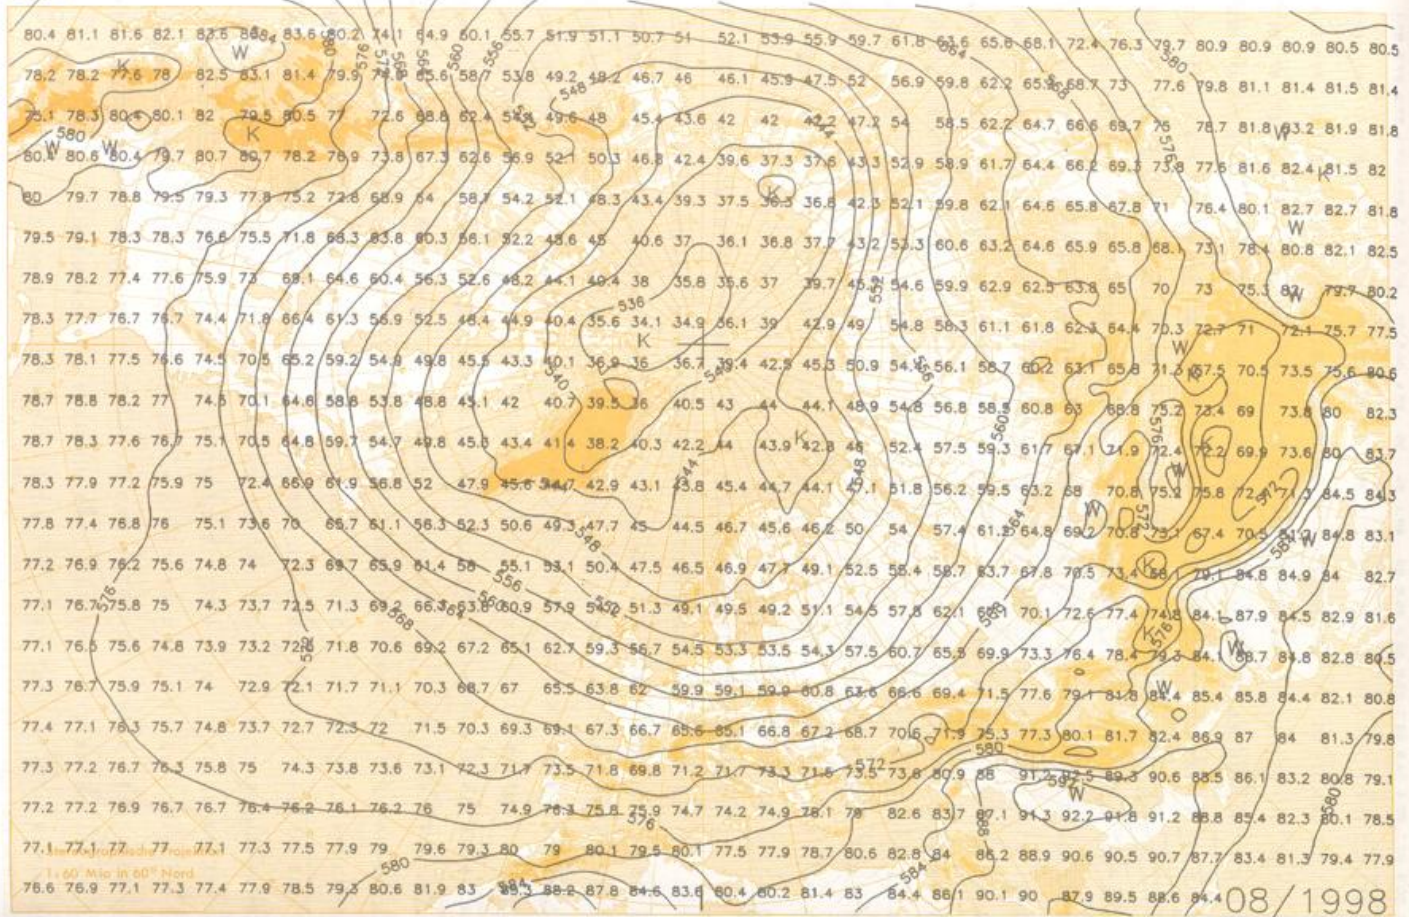 80.4 81.1 81.6 82.1 83.6 83.6 80.2 74.1 64.9 60.1 55.7 51.9 51.1 50.7 51 52.1 53.9 55.9 59.7 61.8 63.6 65.6 68.1 72.4 76.3 79.7 80.9 80.9 80.9 80.5 80.5
78.2 78.2 77.6 78 82.5 83.1 81.4 79.9 65.6 58.7 53.8 49.2 48.2 46.7 46 46.1 45.9 47.5 52 56.9 59.8 62.2 65.9 68.7 73 77.6 79.8 81.1 81.4 81.5 81.4
75.1 78.3 80.4 80.1 82 79.5 80.5 77 72.6 68.8 62.4 49.6 48 45.4 43.6 42 42 42.2 47.2 54 58.5 62.2 64.7 66.6 69.7 75 78.7 81.8 83.2 81.9 81.8
80.6 80.4 79.7 80.7 80.7 78.2 76.9 73.8 67.3 62.6 56.9 52.1 50.3 46.8 42.4 39.6 37.3 37.6 43.3 52.9 58.9 61.7 64.4 66.2 69.3 73.8 77.6 81.6 82.4 81.5 82
80 79.7 78.8 79.5 79.3 77.8 75.2 72.8 68.9 64 58.7 54.2 52.1 48.3 43.4 39.3 37.5 36.3 36.8 42.3 52.1 59.8 62.1 64.6 65.8 67.8 71 76.4 80.1 82.7 82.7 81.8
79.5 79.1 78.3 78.3 76.6 75.5 71.8 68.3 63.8 60.3 56.1 52.2 48.6 45 40.6 37 36.1 36.8 37.7 43.2 53.3 60.6 63.2 64.6 65.9 65.8 68.1 73.1 78.4 80.8 82.1 82.5
78.9 78.2 77.4 77.6 75.9 73 69.1 64.6 60.4 56.3 52.6 48.2 44.1 40.4 38 35.8 35.6 37 39.7 54.6 59.9 62.9 62.5 63.8 65 70 73 75.3 82 79.7 80.2
78.3 77.7 76.7 76.7 74.4 71.8 66.4 61.3 56.9 52.5 48.4 44.9 40.4 35.6 34.1 34.9 36.1 39 42.9 49 54.8 58.3 61.1 61.8 62.3 64.4 70.3 72.7 71 72.1 75.7 77.5
78.3 78.1 77.5 76.6 74.5 70.5 65.2 59.2 54.9 49.8 45.5 43.3 40.1 36.9 36 36.7 39.4 42.5 45.3 50.9 56.1 58.7 60.2 63.1 65.8 71.3 67.5 70.5 73.5 75.6 80.6
78.7 78.8 78.2 77 74.5 70.1 64.6 58.8 53.8 48.8 45.1 42 40.7 39.5 36 40.5 43 44 44.1 48.9 54.8 56.8 58.9 60.8 63 68.8 75.2 73.4 69 73.8 80 82.3
78.7 78.3 77.6 76.7 75.1 70.5 64.8 59.7 54.7 49.8 45.8 43.4 41.4 38.2 40.3 42.2 44 43.9 42.8 46 52.4 57.5 59.3 61.7 67.1 71.9 72.4 72.2 69.9 73.6 80 83.7
78.3 77.9 77.2 75.9 75 72.4 66.9 61.9 56.8 52 47.9 45.6 44.7 42.9 43.1 43.8 45.4 44.7 44.1 47.1 51.8 56.2 59.5 63.2 68 70.8 75.2 75.8 71.3 84.5 84.3
77.8 77.4 76.8 76 75.1 73.6 70 65.7 61.1 56.3 52.3 50.6 49.3 47.7 45 44.5 46.7 45.6 46.2 50 54 57.4 61.2 64.8 69.2 70.8 73.1 67.4 70.5 84.8 83.1
77.2 76.9 76.2 75.6 74.8 74 72.3 69.7 65.9 61.4 58 55.1 53.1 50.4 47.5 46.5 46.9 47.7 49.1 52.5 55.4 58.7 63.7 67.8 70.5 73.4 68.1 79.1 84.8 84.9 84 82.7
77.1 76.7 75.8 75 74.3 73.7 72.5 71.3 69.2 66.3 63.8 60.9 57.9 51.3 49.1 49.5 49.2 51.1 54.5 57.8 62.1 70.1 72.6 77.4 74.8 84.1 87.9 84.5 82.9 81.6
77.1 76.5 75.6 74.8 73.9 73.2 71.8 70.6 69.2 67.2 65.1 62.7 59.3 56.7 54.5 53.3 53.5 54.3 57.5 60.7 65.5 69.9 73.3 76.4 78.4 79.3 84.1 88.7 84.8 82.8 80.5
77.3 76.7 75.9 75.1 74 72.9 72.1 71.7 71.1 70.3 68.7 67 65.5 63.8 62 59.9 59.1 59.9 60.8 63.6 66.6 69.4 71.5 77.6 79.1 81.8 84.4 85.4 85.8 84.4 82.1 80.8
77.4 77.1 76.3 75.7 74.8 73.7 72.7 72.3 72 71.5 70.3 69.3 69.1 67.3 66.7 65.6 65.1 66.8 67.2 68.7 70.6 71.9 75.3 77.3 80.1 81.7 82.4 86.9 87 84 81.3 79.8
77.3 77.2 76.7 76.3 75.8 75 74.3 73.8 73.6 73.1 72.3 71.7 73.5 71.8 69.8 71.2 71.7 73.3 71.5 73.5 73.6 80.9 88 91.2 92.5 89.3 90.6 88.5 86.1 83.2 80.8 79.1
77.2 77.2 76.9 76.7 76.7 76.4 76.2 76.1 76.2 76 75 74.9 76.3 75.8 75.9 74.7 74.2 74.9 78.1 79 82.6 83.7 87.1 91.3 92.2 91.8 91.2 88.8 85.4 82.3 80.1 78.5
77.1 77.1 77 77 77.1 77.3 77.5 77.9 79 79.6 79.3 80 79 80.1 79.5 80.1 77.5 77.9 78.7 80.6 82.8 84 86.2 88.9 90.6 90.5 90.7 87.7 83.4 81.3 79.4 77.9
Stereographische Projektion
1:60 Mio in 60° Nord
76.6 76.9 77.1 77.3 77.4 77.9 78.5 79.3 80.6 81.9 83 85.3 88.2 87.8 84.6 83.6 80.4 80.2 81.4 83 84.4 86.1 90.1 90 87.9 89.5 88.6 84.4
08/1998